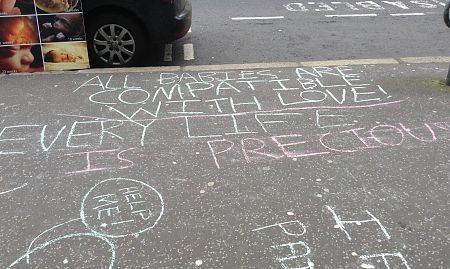 ALL BABIES ARE
COMPATIBLE
WITH LOVE!
EVERY LIFE
IS PRECIOUS
HELP
ME!
I F